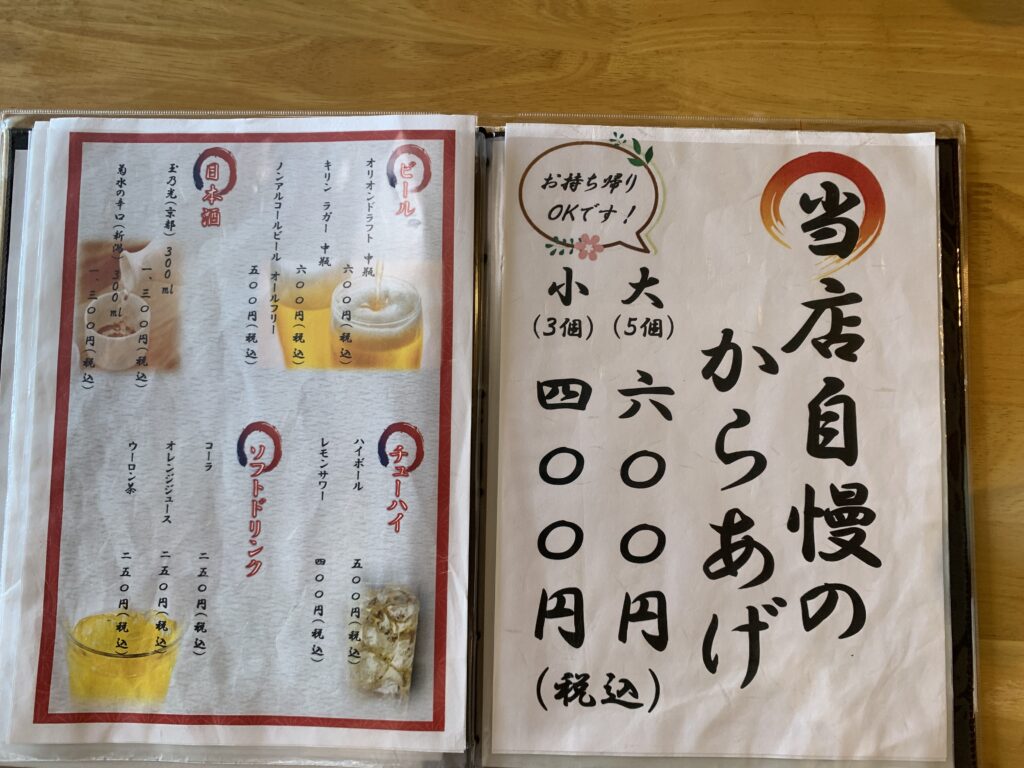 当店自慢の
からあげ
お持ち帰り
OKです！
大(5個) 六〇〇円
小(3個) 四〇〇円
(税込)
ビール
オリオンドラフト 中瓶 六〇〇円(税込)
キリン ラガー 中瓶 六〇〇円(税込)
ノンアルコールビール オールフリー 五〇〇円(税込)
日本酒
玉乃光(京都)300ml 一、三〇〇円(税込)
菊水の辛口(新潟)300ml 一、三〇〇円(税込)
チューハイ
ハイボール 五〇〇円(税込)
レモンサワー 四〇〇円(税込)
ソフトドリンク
コーラ 二五〇円(税込)
オレンジジュース 二五〇円(税込)
ウーロン茶 二五〇円(税込)